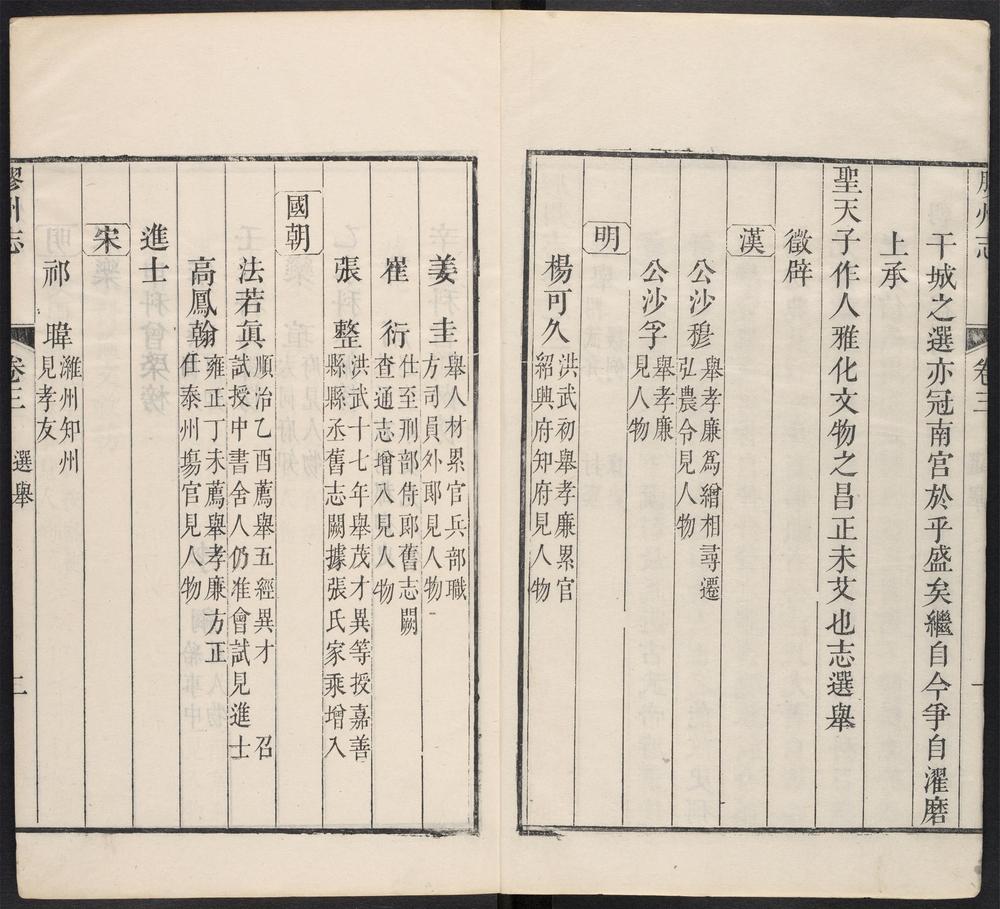 膠州志
卷三
干城之選亦冠南宫於乎盛矣繼自今爭自濯磨
上承
聖天子作人雅化文物之昌正未艾也志選舉
徵辟
漢
公沙穆
舉孝廉爲繒相尋遷
弘農令見人物
公沙孚
舉孝廉
見人物
明
楊可久
洪武初舉孝廉累官
紹興府知府見人物
姜圭
舉人材累官兵部職
方司員外郎見人物
崔衍
仕至刑部侍郎舊志闕
查通志增入見人物
張整
洪武十七年舉茂才異等授嘉善
縣縣丞舊志闕據張氏家乘增入
國朝
法若眞
順治乙酉薦舉五經異才 召
試授中書舍人仍准會試見進士
高鳳翰
雍正丁未薦舉孝廉方正
仕泰州塲官見人物
進士
宋
祁暐
濰州知州
見孝友
膠州志
卷三
選舉